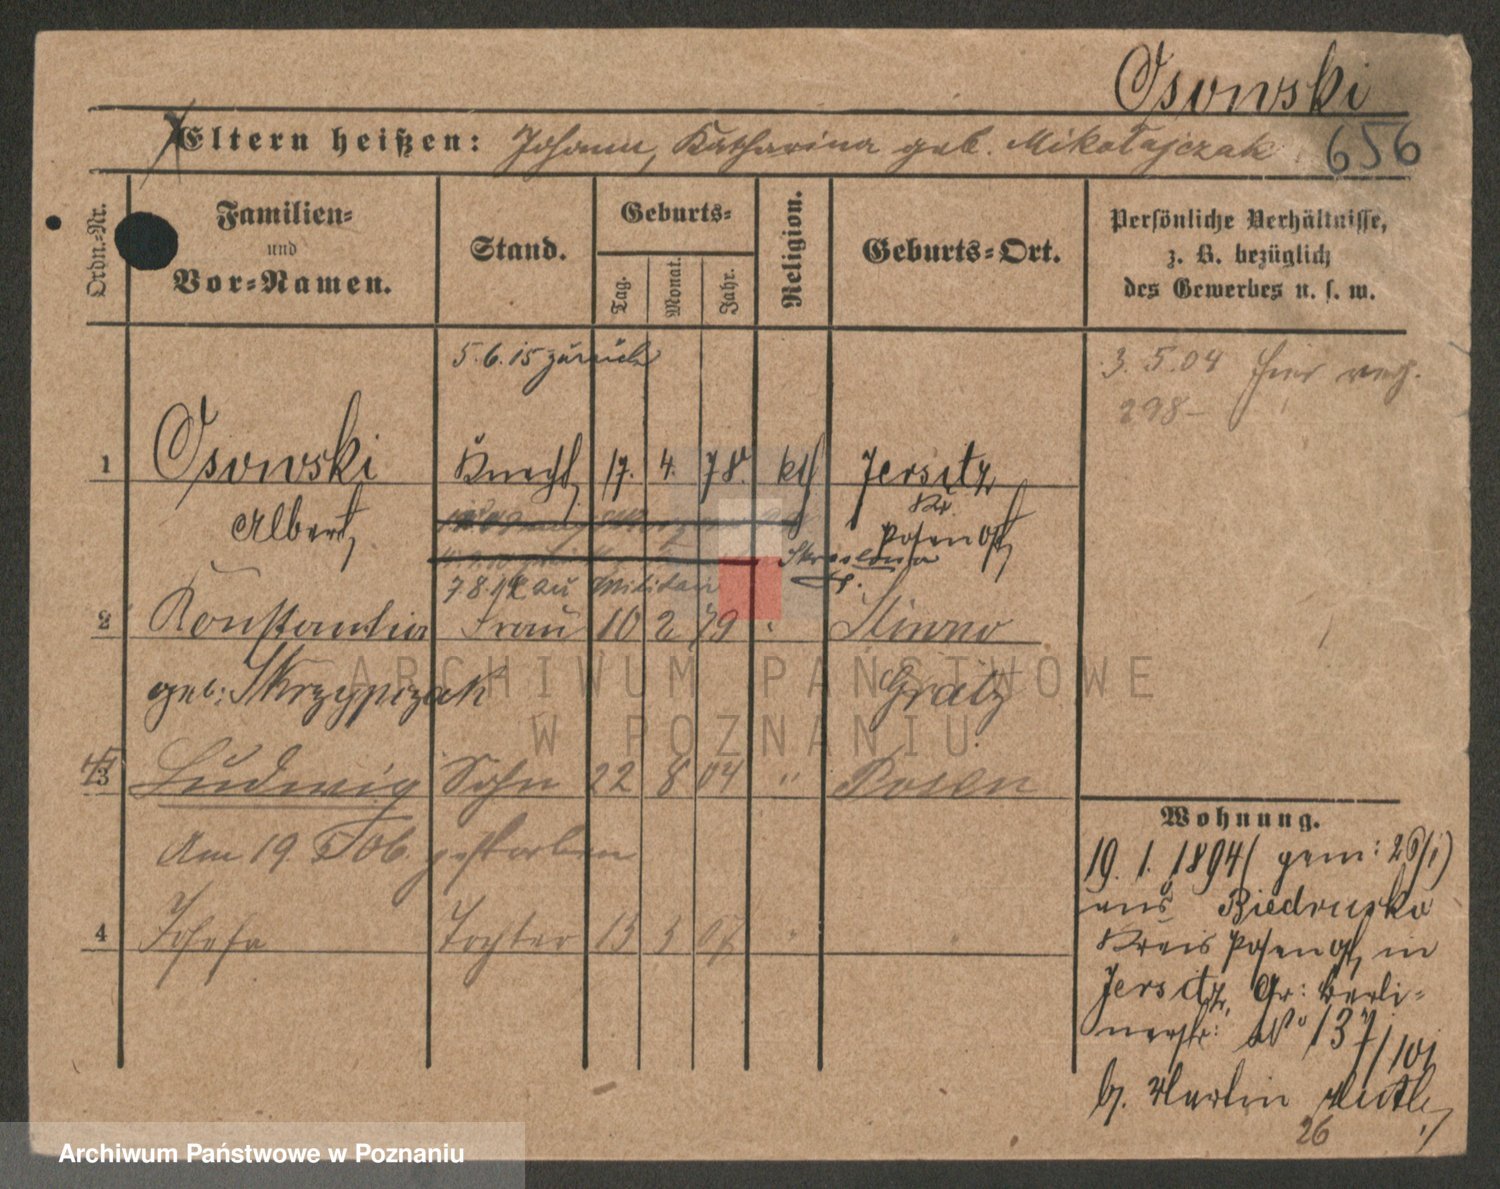 Osowski
Eltern heißen: Johann, Katharina geb. Mikołajczak
656
Ordn.-Nr.
Familien-
und
Vor-Namen.
Stand.
Geburts-
Tag.
Monat.
Jahr.
Religion.
Geburts-Ort.
Persönliche Verhältnisse,
z. B. bezüglich
des Gewerbes u. s. w.
5.6.15 zurück
3.5.04 hier
298-
1 Osowski Knecht 17. 4. 78. kth Jersitz
Albert Kr.
Posen Ost
7.8.14 zu Militär
2 Konstantia Frau 10 2 79 "
geb. Skrzypczak Grätz
3 Ludwig Sohn 22 8 04 " Posen
Am 19. Feb. gestorben
4 Josefa Tochter 13 3 07 " "
Wohnung.
19. 1. 1894 (gem: 26/1)
aus Biedrusko
Kreis Posen Ost, in
Jersitz, Gr: Berli-
nerstr: No 137/101
b. Martin
26
ARCHIWUM PAŃSTWOWE
W POZNANIU
Archiwum Państwowe w Poznaniu